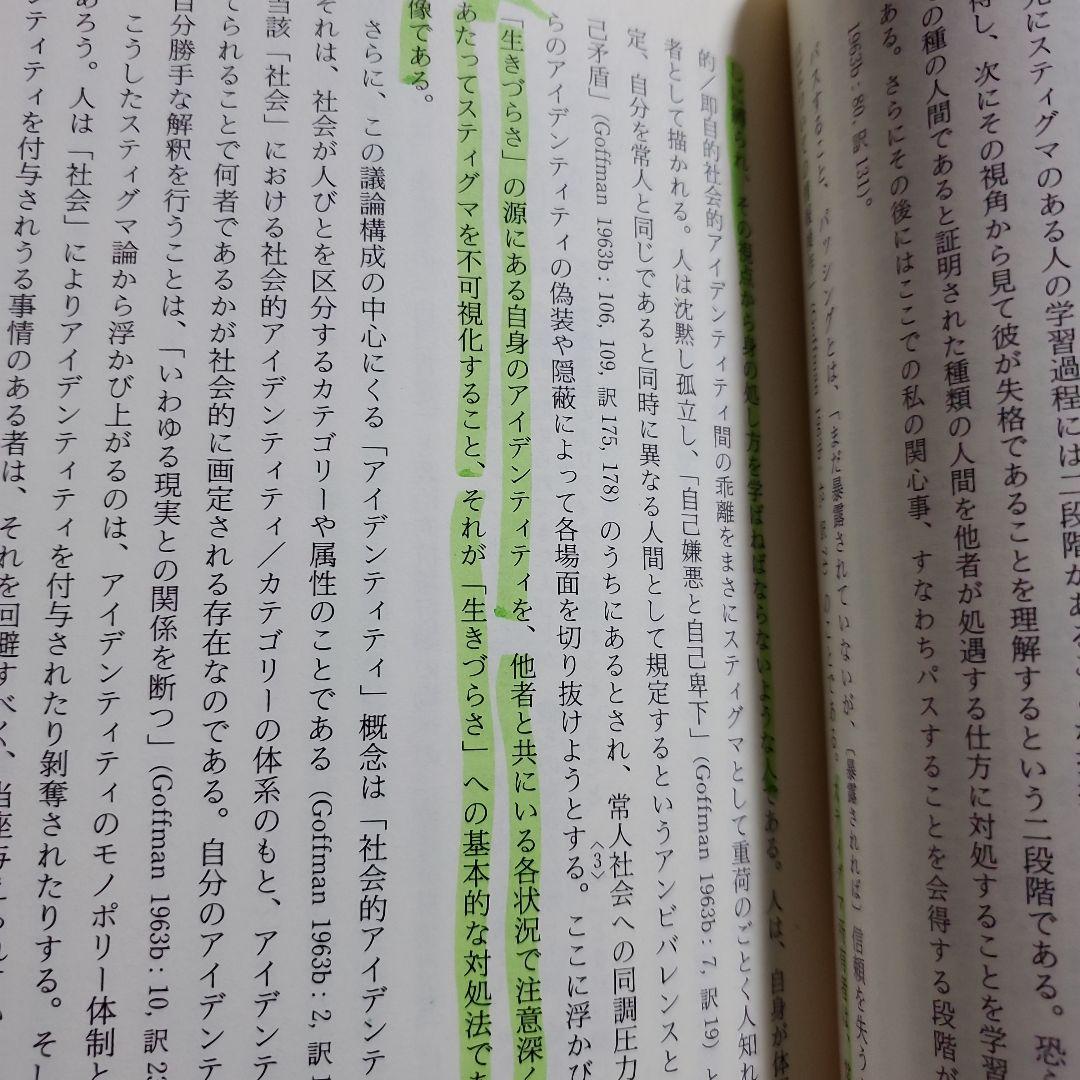 元にスティグマのある人の学習過程には二段階がある
得し、次にその視角から見て彼が失格であることを理解するという二段階である。恐
の種の人間であると証明された種類の人間を他者が処遇する仕方に対処することを学習
ある。さらにその後にはここでの私の関心事、すなわちパスすることを会得する段階が
1963b: 80 訳 131)。
パスすること、パッシングとは、「まだ暴露されていないが、〔暴露されれば〕信頼を失う
のことである。
られ、その視点から身の処し方を学ばねばならないような人である。人は、自身が体
的／即自的社会的アイデンティティ間の乖離をまさにスティグマとして重荷のごとく人知れ
者として描かれる。人は沈黙し孤立し、「自己嫌悪と自己卑下」(Goffman 1963b: 7, 訳 19) と
定、自分を常人と同じであると同時に異なる人間として規定するというアンビバレンスと
己矛盾」(Goffman 1963b: 106, 109, 訳 175, 178) のうちにあるとされ、常人社会への同調圧力
らのアイデンティティの偽装や隠蔽によって各場面を切り抜けようとする。〈3〉ここに浮かび
「生きづらさ」の源にある自身のアイデンティティを、他者と共にいる各状況で注意深く
あたってスティグマを不可視化すること、それが「生きづらさ」への基本的な対処法であ
像である。
さらに、この議論構成の中心にくる「アイデンティティ」概念は「社会的アイデンテ
それは、社会が人びとを区分するカテゴリーや属性のことである (Goffman 1963b: 2, 訳
当該「社会」における社会的アイデンティティ／カテゴリーの体系のもと、アイデンテ
てられることで何者であるかが社会的に画定される存在なのである。自分のアイデンテ
自分勝手な解釈を行うことは、「いわゆる現実との関係を断つ」(Goffman 1963b: 10, 訳 23
こうしたスティグマ論から浮かび上がるのは、アイデンティティのモノポリー体制と
あろう。人は「社会」によりアイデンティティを付与されたり剝奪されたりする。そし
ンティティを付与されうる事情のある者は、それを回避すべく、当座与えられてい